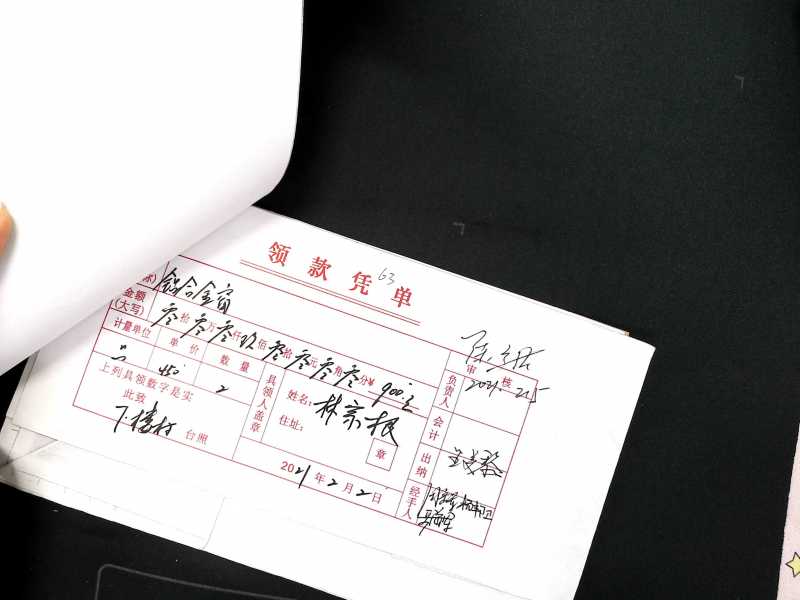 领款凭单
63
称
铝合金窗
金额(大写) 零拾零万零仟玖佰零拾零元零角零分¥900元
计量单位 单价 数量
450 2
上列具领数字是实
此致
台照
具领人盖章
姓名: 林宗根
住址:
章
2021年2月2日
审核
负责人
2021.2.5
会计
出纳
经手人